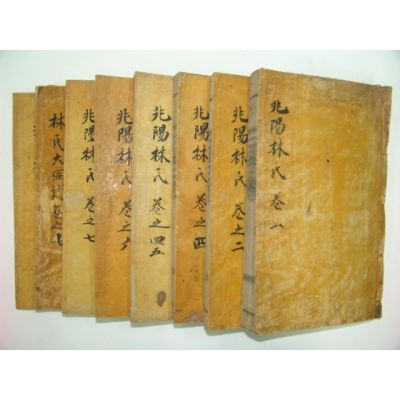 兆陽林氏 卷
兆陽林氏 卷之二
兆陽林氏 卷之四
兆陽林氏 卷之四五
兆陽林氏 卷之六
兆陽林氏 卷之七
林氏大同譜卷之